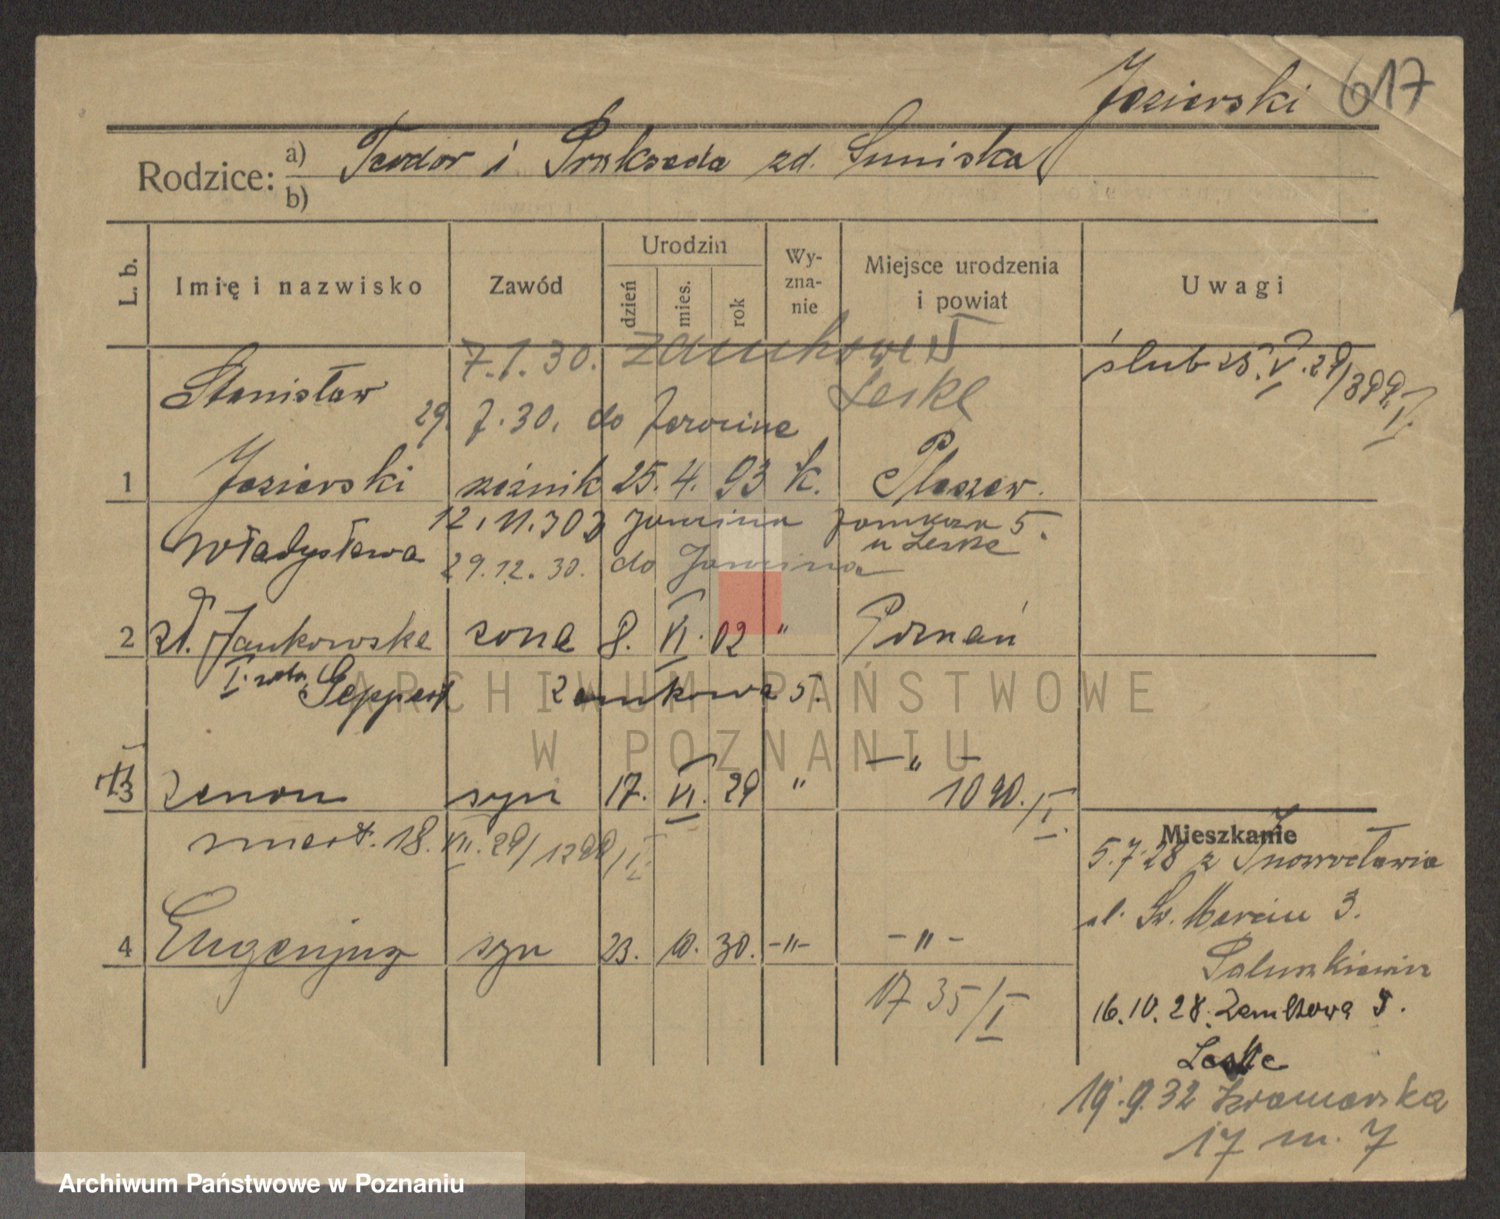 Jezierski 617
Rodzice: a) Teodor i Prakseda zd. Suminska
b)
L. b. Imię i nazwisko Zawód Urodzin dzień mies. rok Wyznanie Miejsce urodzenia i powiat Uwagi
7.1.30. Zamkowa 5
Leske
ślub 25.V.29/399/I.
Stanisław
29.7.30. do Jarocina
1 Jezierski rzeźnik 25. 4. 93 k. Pleszew.
12.11.30 z Jarocina Zamkowa 5.
u Leske
Władysława
29.12.30. do Jarocina
2 zd. Jankowska żona 8. VI. 02 " Poznań
I. voto Geppert Zamkowa 5.
3 Zenon syn 17. VI. 29 " -"-
1090./I.
zmarł. 18.VII.29/1299/I.
4 Eugenjusz syn 23. 10. 30. -"- -"-
1735/I
Mieszkanie
5.7.28 z Inowrocławia
ul. Św. Marcin 3.
16.10.28. Zamkowa 5.
Leske
19.9.32 Kramarska
17 m. 7
ARCHIWUM PAŃSTWOWE
W POZNANIU
Archiwum Państwowe w Poznaniu